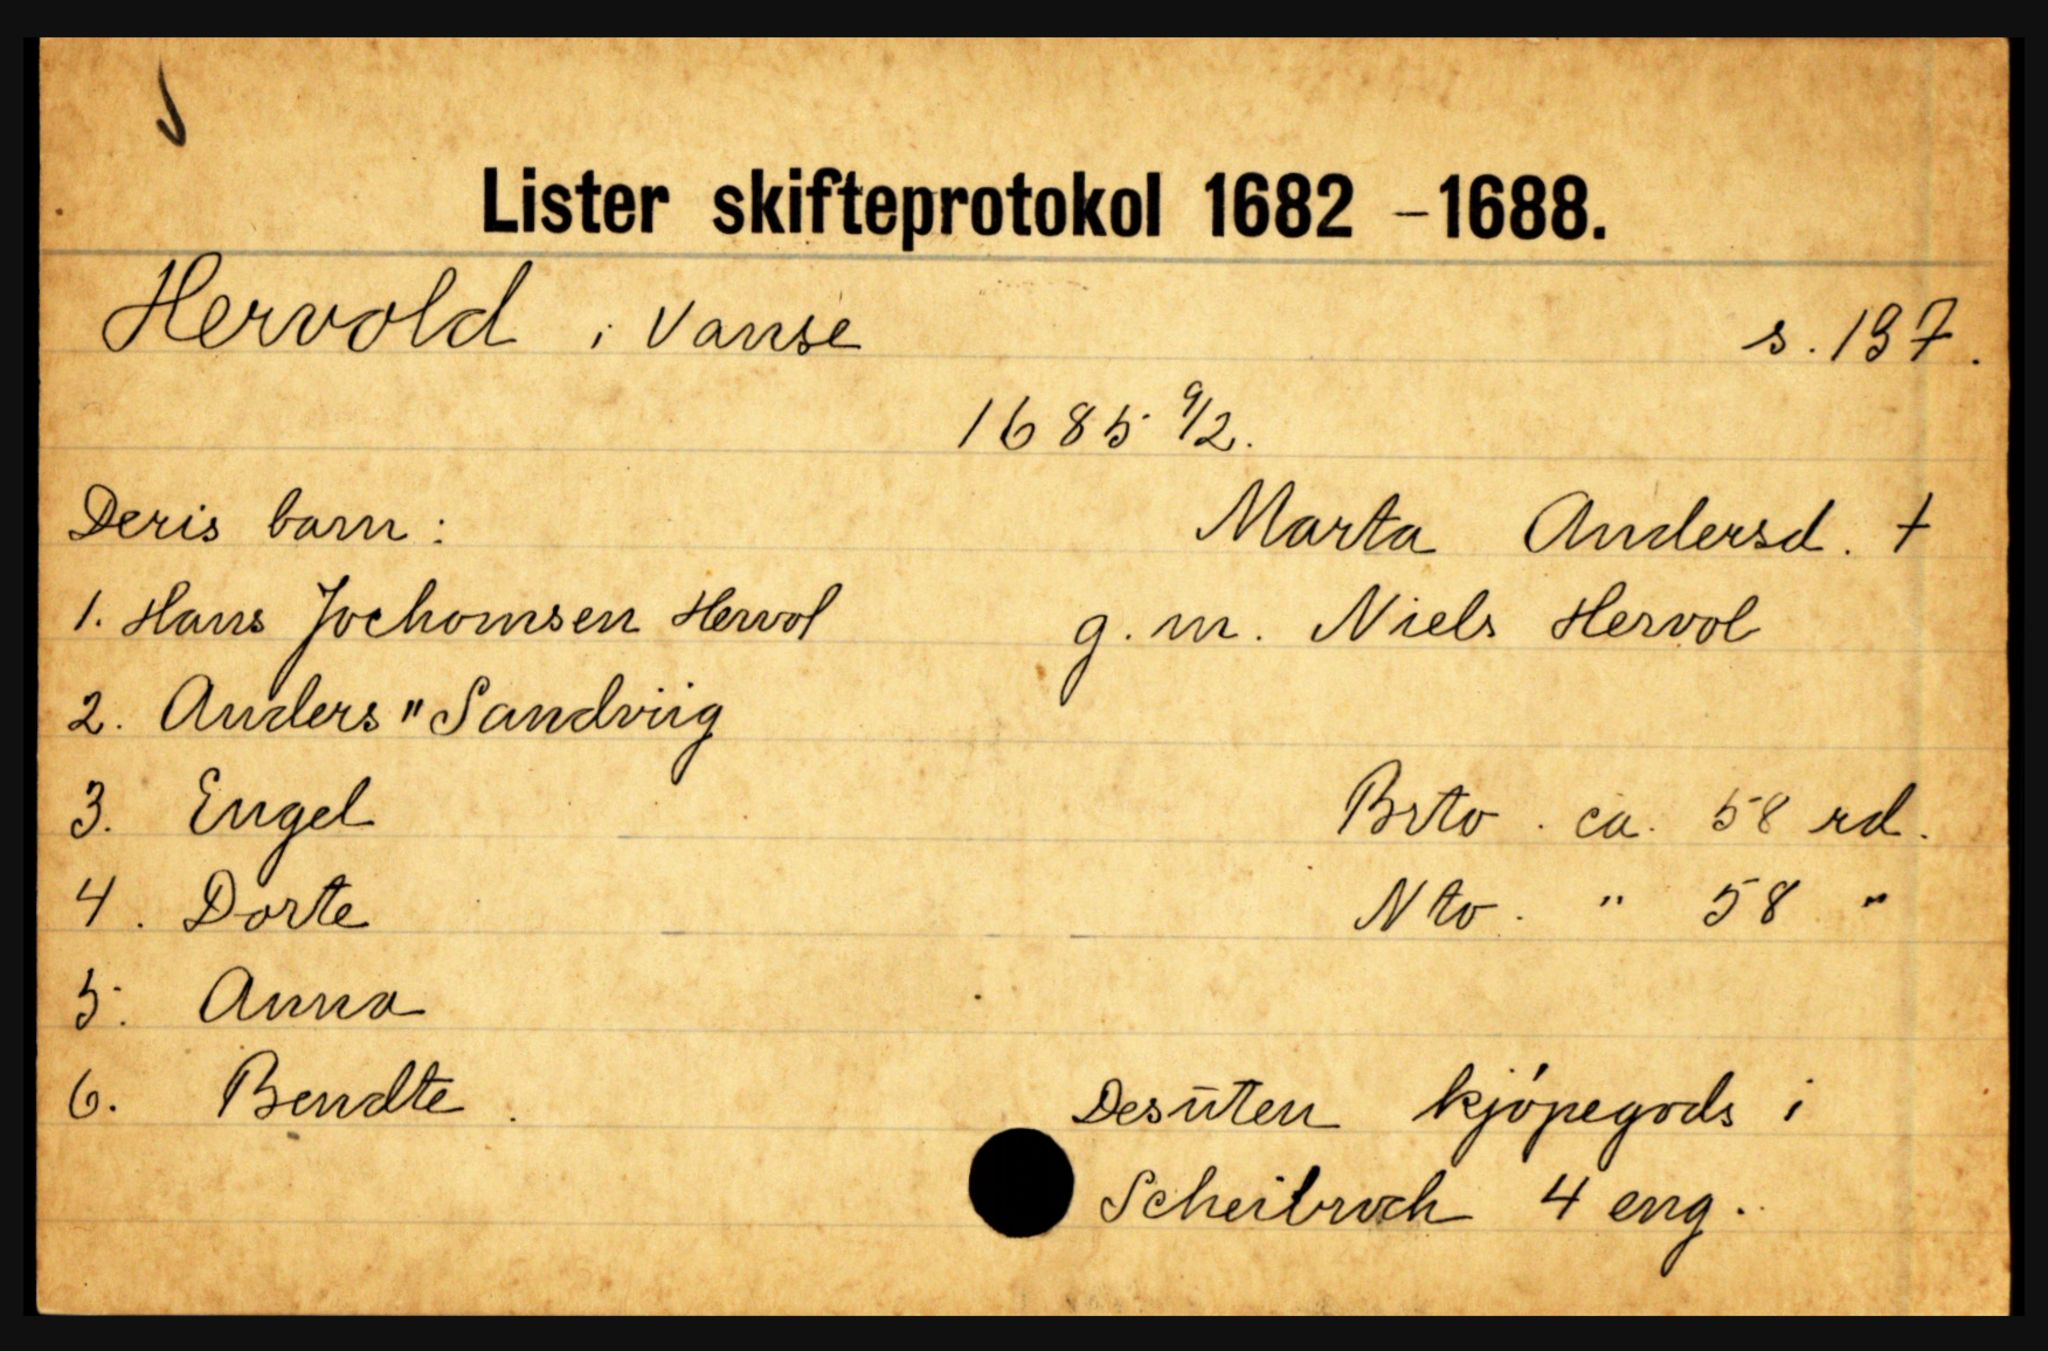 Lister skifteprotokol 1682 - 1688.
Hervold i Vanse s. 197.
1685 9/2.
Marta Andersd. †
g. m. Niels Hervol
Deris barn:
1. Hans Jochomsen Hervol
2. Anders " Sandviig
3. Engel
4. Dorte
5. Anna
6. Bendte.
Brto. ca. 58 rd.
Nto. " 58 "
Desuten kjøpegods i
Scheibroch 4 eng.